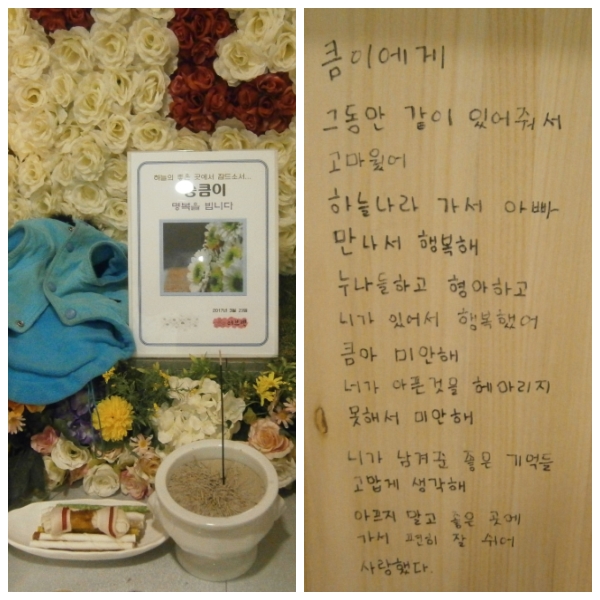 하늘의 좋은 곳에서 잠드소서...
큼이
명복을 빕니다
큼이에게
그동안 같이 있어줘서
고마웠어
하늘나라 가서 아빠
만나서 행복해
누나들하고 형아하고
니가 있어서 행복했어
큼아 미안해
너가 아픈것을 헤아리지
못해서 미안해
니가 남겨준 좋은 기억들
고맙게 생각해
아프지 말고 좋은 곳에
가서 편히 잘 쉬어
사랑했다.